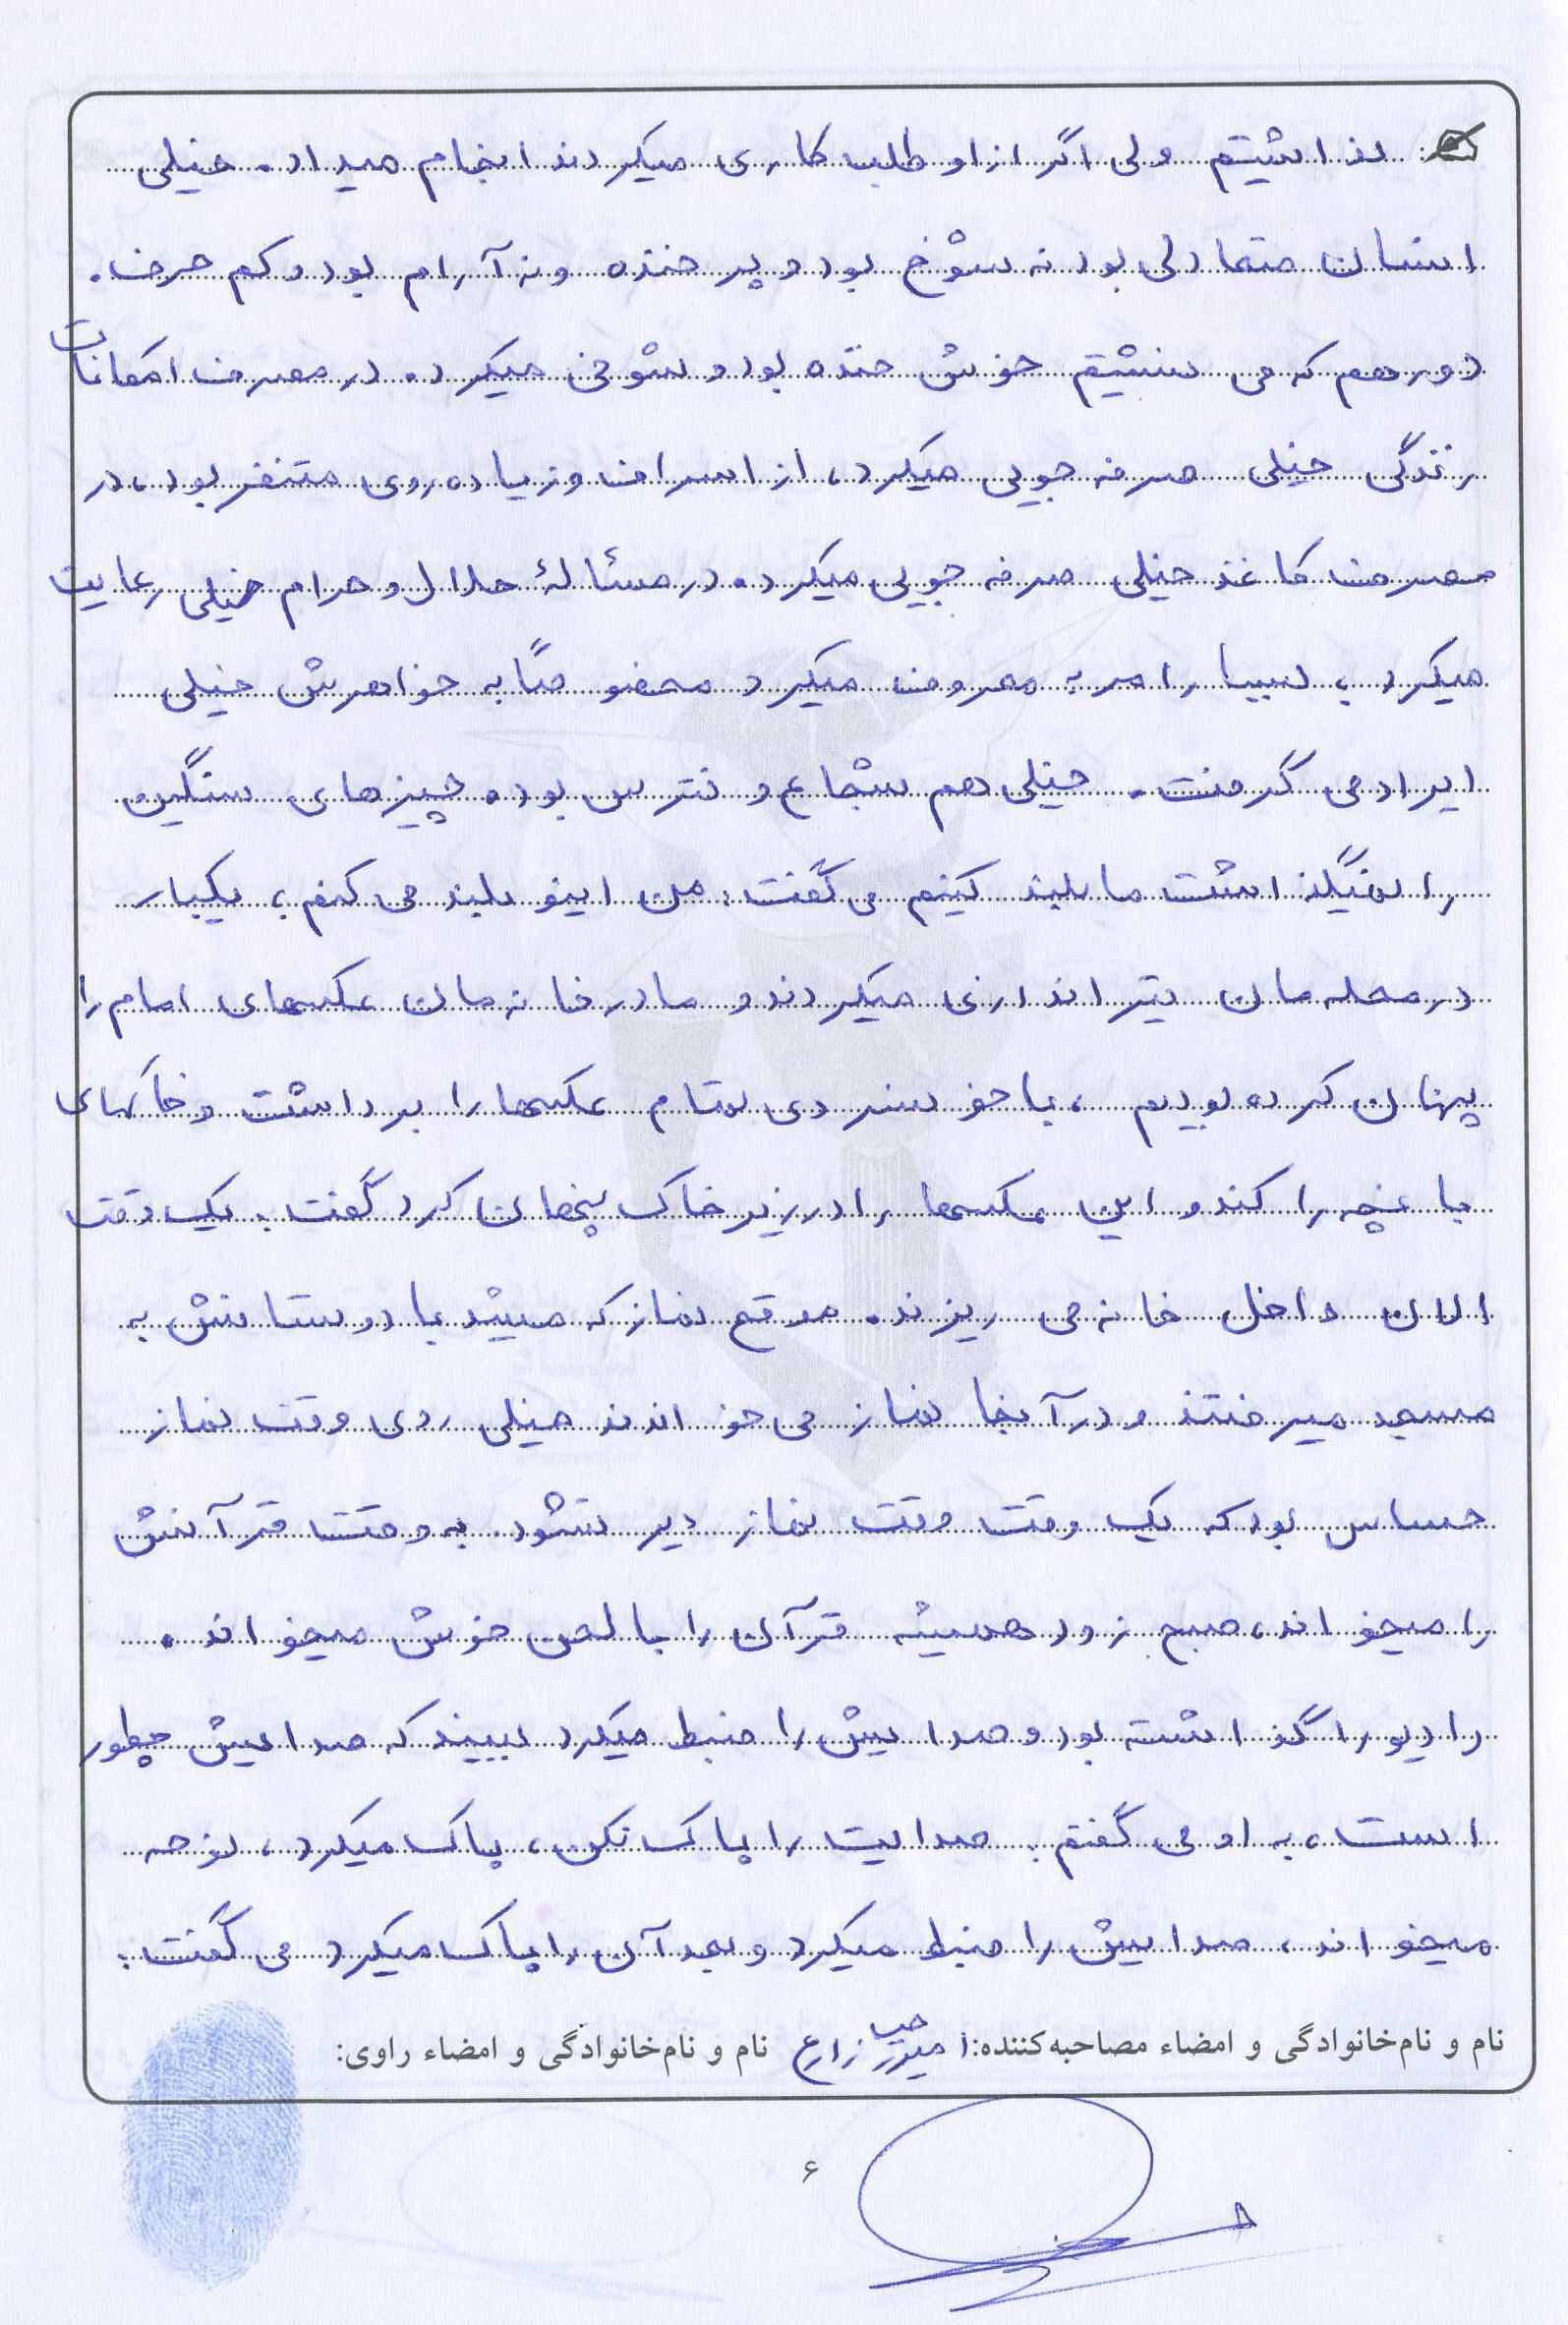 نداشتیم ولی اگر از او طلب کاری میکردند انجام میداد. خیلی
انسان متعادلی بود نه شوخ بود و پر خنده و نه آرام بود و کم حرف.
دور هم که می نشستیم خوش خنده بود و شوخی میکرد. در مصرف امکانات
زندگی خیلی صرفه جویی میکرد، از اسراف و زیاده روی متنفر بود، در
مصرف کاغذ خیلی صرفه جویی میکرد. در مسئالهٔ حلال و حرام خیلی رعایت
میکرد، بسیار امر به معروف میکرد مخصوصاً به خواهرش خیلی
ایراد می گرفت. خیلی هم شجاع و نترس بود. چیزهای سنگین
را نمیگذاشت ما بلند کنیم می گفت: من اینو بلند می کنم، یکبار
در محله مان تیراندازی میکردند و ما در خانه مان عکسهای امام را
پنهان کرده بودیم، با خونسردی تمام عکسها را برداشت و خاکهای
باغچه را کند و این عکسها را در زیر خاک پنهان کرد گفت: یک وقت
الان داخل خانه می ریزند. موقع نماز که میشد با دوستانش به
مسجد میرفتند و در آنجا نماز می خواندند خیلی روی وقت نماز
حساس بود که یک وقت وقت نماز دیر نشود. به وقت قرآنش
را میخواند، صبح زود همیشه قرآن را با لحن خوش میخواند.
رادیو را گذاشته بود و صدایش را ضبط میکرد ببیند که صدایش چطور
است، به او می گفتم: صدایت را پاک نکن، پاک میکرد، نوحه
میخواند، صدایش را ضبط میکرد و بعد آن را پاک میکرد می گفت:
نام و نام‌خانوادگی و امضاء مصاحبه‌کننده: زارع نام و نام‌خانوادگی و امضاء راوی:
۶